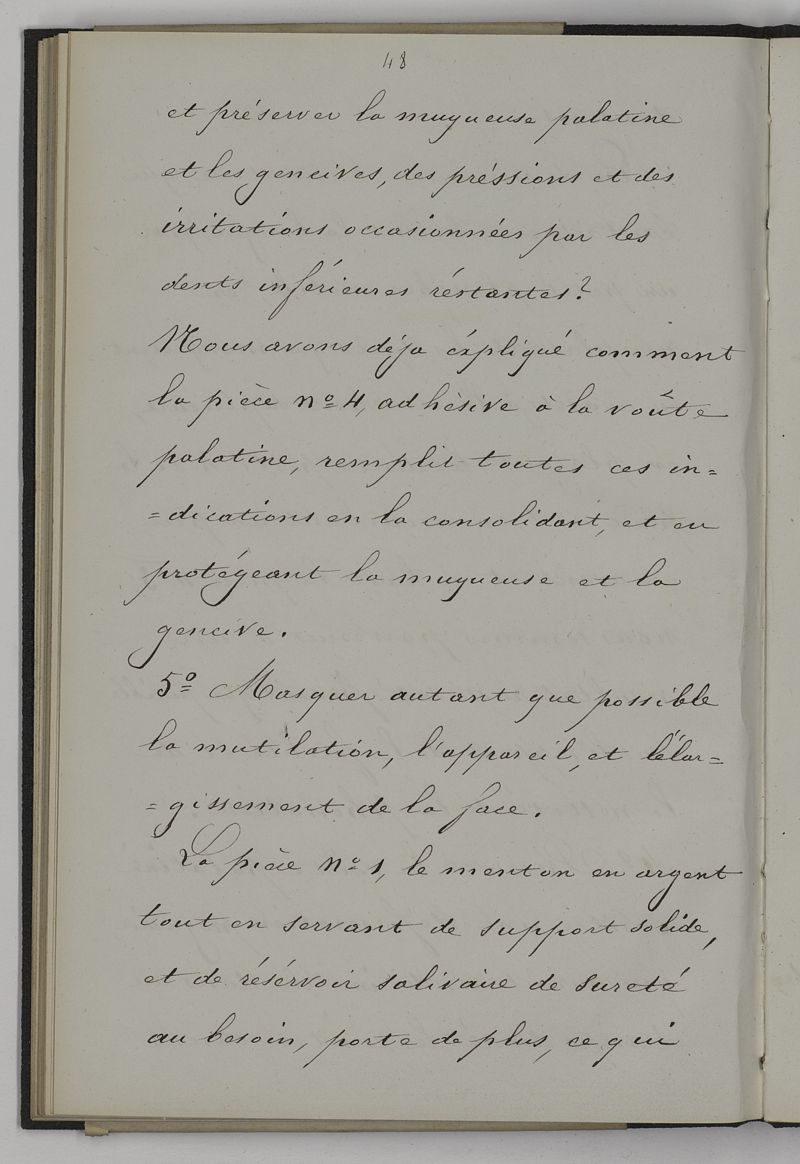 48
et préserver la muqueuse palatine
et les gencives, des préssions et des
irritations occasionnées par les
dents inférieures réstantes?
Nous avons déja éxpliqué comment
la pièce nº 4, adhèsive à la voûte
palatine, remplit toutes ces in=
=dications en la consolidant, et en
protégeant la muqueuse et la
gencive.
5º Masquer autant que possible
la mutilation, l'appareil, et l'élar=
=gissement de la face.
La pièce nº 1, le menton en argent
tout en servant de support solide,
et de résérvoir salivaire de sureté
au besoin, porte de plus, ce qui